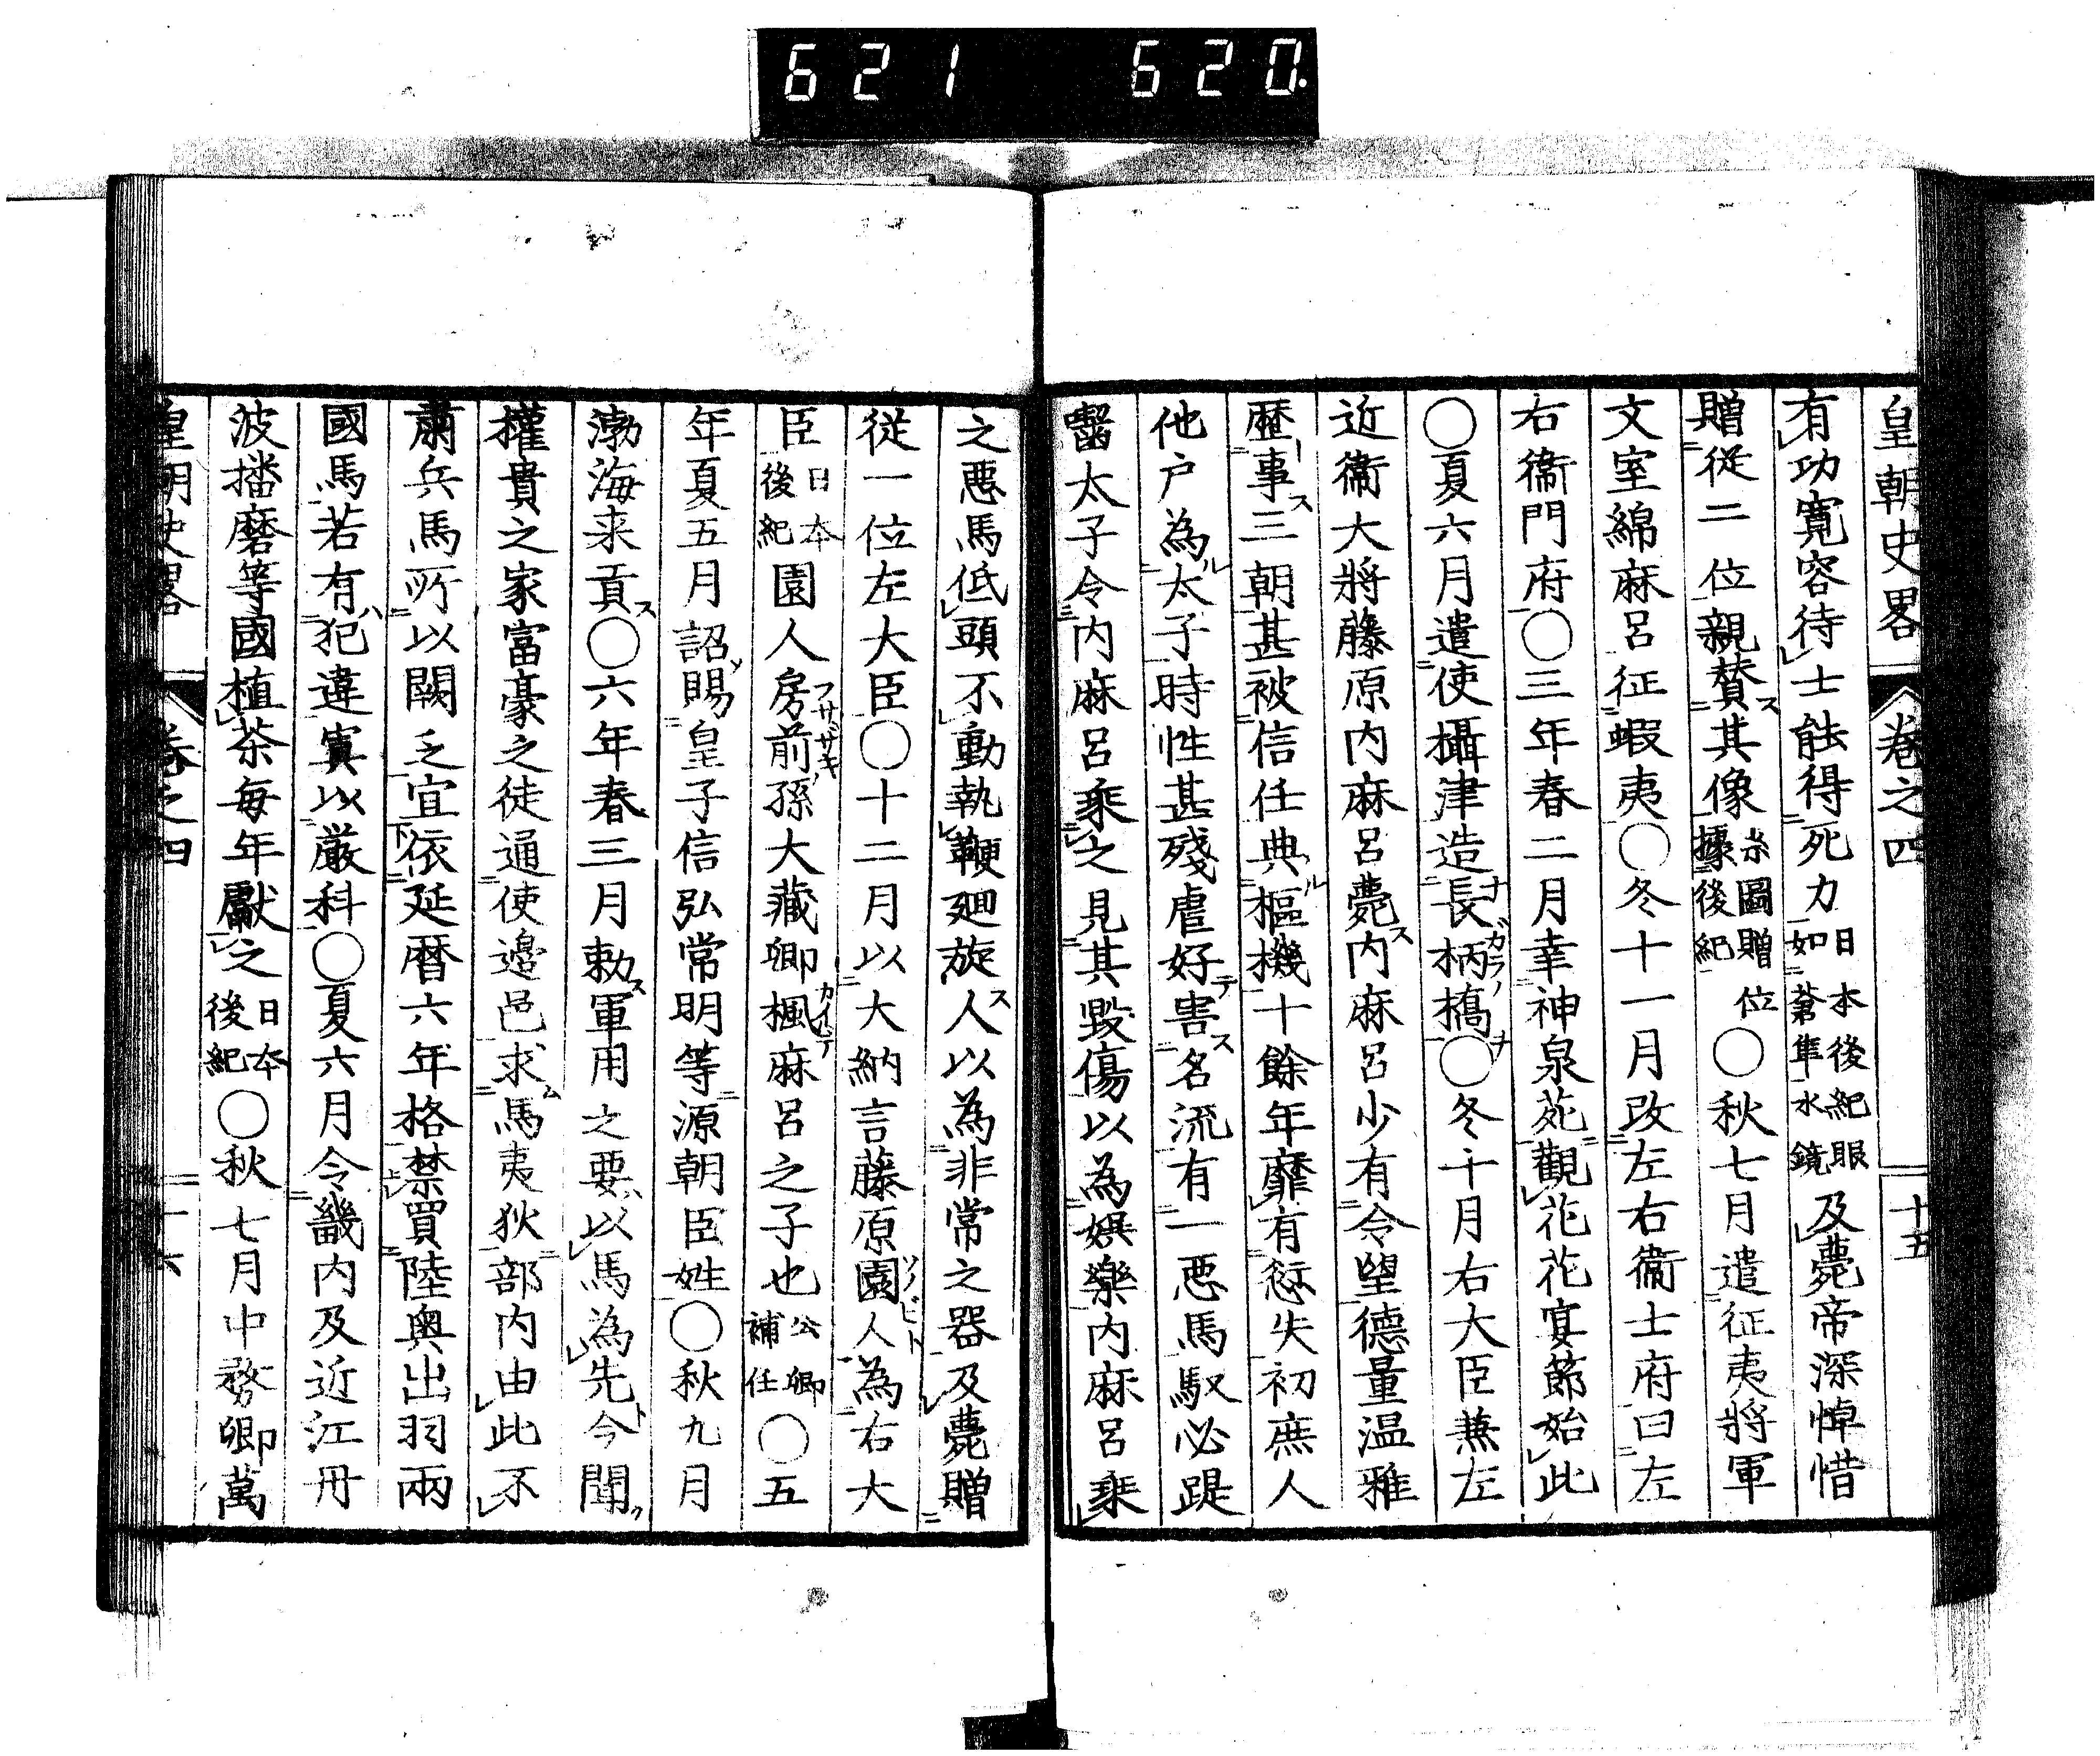 621 620.
皇朝史畧 卷之四 十五
有功寬容待士能得死力日本後紀眼如蒼隼水鏡及薨帝深悼惜
贈從二位親賛其像系圖贈位據後紀〇秋七月遣征夷將軍
文室綿麻呂征蝦夷〇冬十一月改左右衞士府曰左
右衞門府〇三年春二月幸神泉苑觀花花宴節始此
〇夏六月遣使攝津造長柄橋〇冬十月右大臣兼左
近衞大將藤原内麻呂薨内麻呂少有令望德量温雅
歷事三朝甚被信任典樞機十餘年靡有愆失初庶人
他戸為太子時性甚殘虐好害名流有一悪馬馭必踶
齧太子令内麻呂乘之見其毀傷以為娯樂内麻呂乘
之悪馬低頭不動執鞭廻旋人以為非常之器及薨贈
從一位左大臣〇十二月以大納言藤原園人為右大
臣日本後紀園人房前孫大藏卿楓麻呂之子也公卿補任〇五
年夏五月詔賜皇子信弘常明等源朝臣姓〇秋九月
渤海来貢〇六年春三月勅軍用之要以馬為先今聞
權貴之家富豪之徒通使邊邑求馬夷狄部内由此不
肅兵馬所以闕乏宜依延暦六年格禁買陸奥出羽兩
國馬若有犯違寘以嚴科〇夏六月令畿内及近江丹
波播磨等國植茶每年獻之日本後紀〇秋七月中務卿萬
皇朝史畧 卷之四 十六